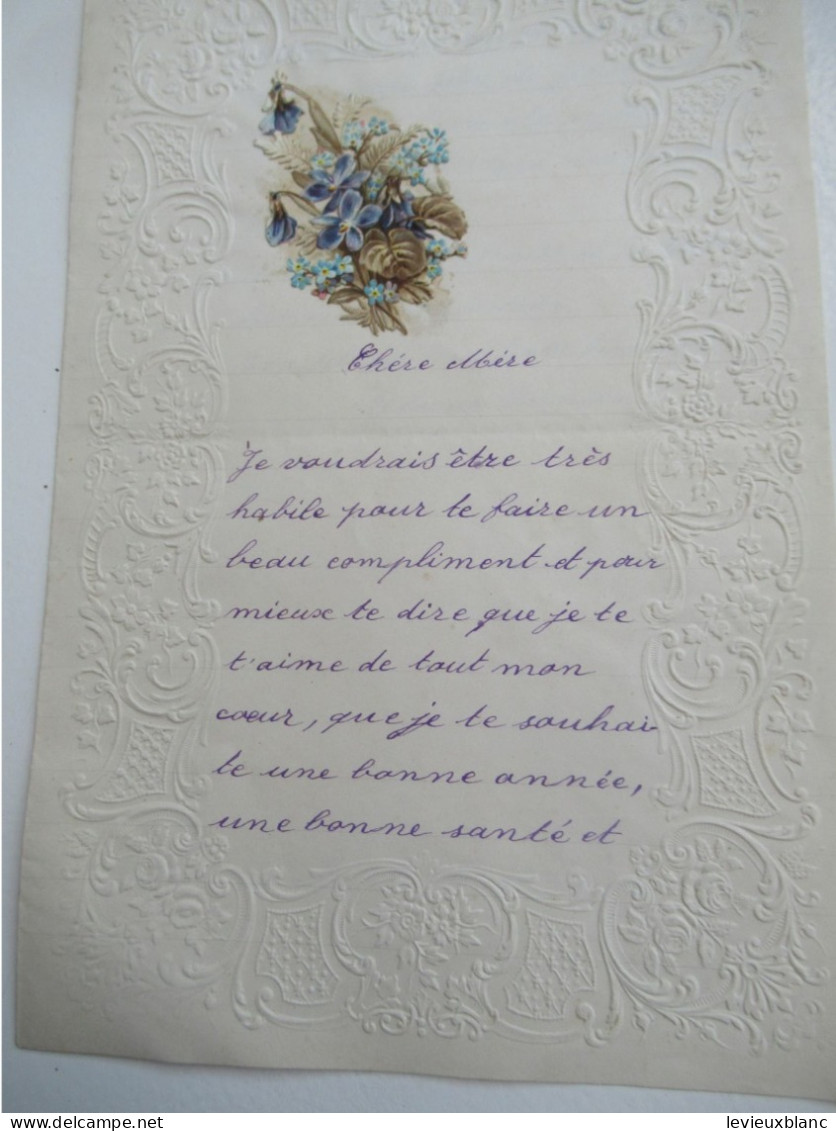 Chére Mére
Je voudrais être très
habile pour te faire un
beau compliment et pour
mieux te dire que je te
t'aime de tout mon
cœur, que je te souhai-
te une bonne année,
une bonne santé et
levieuxblanc